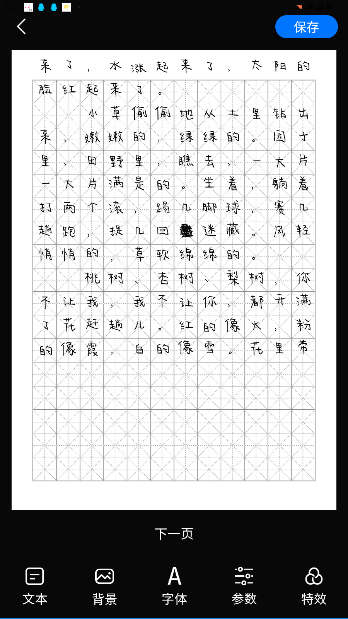 保存
来了，水涨起来了，太阳的
脸红起来了。
小草偷偷地从土里钻出
来，嫩嫩的，绿绿的。园子
里，田野里，瞧去，一大片
一大片满是的。坐着，躺着
打两个滚，踢几脚球，赛几
趟跑，捉几回迷藏。风轻
悄悄的，草软绵绵的。
桃树、杏树、梨树，你
不让我，我不让你，都开满
了花赶趟儿。红的像火，粉
的像霞，白的像雪。花里带
下一页
文本 背景 字体 参数 特效